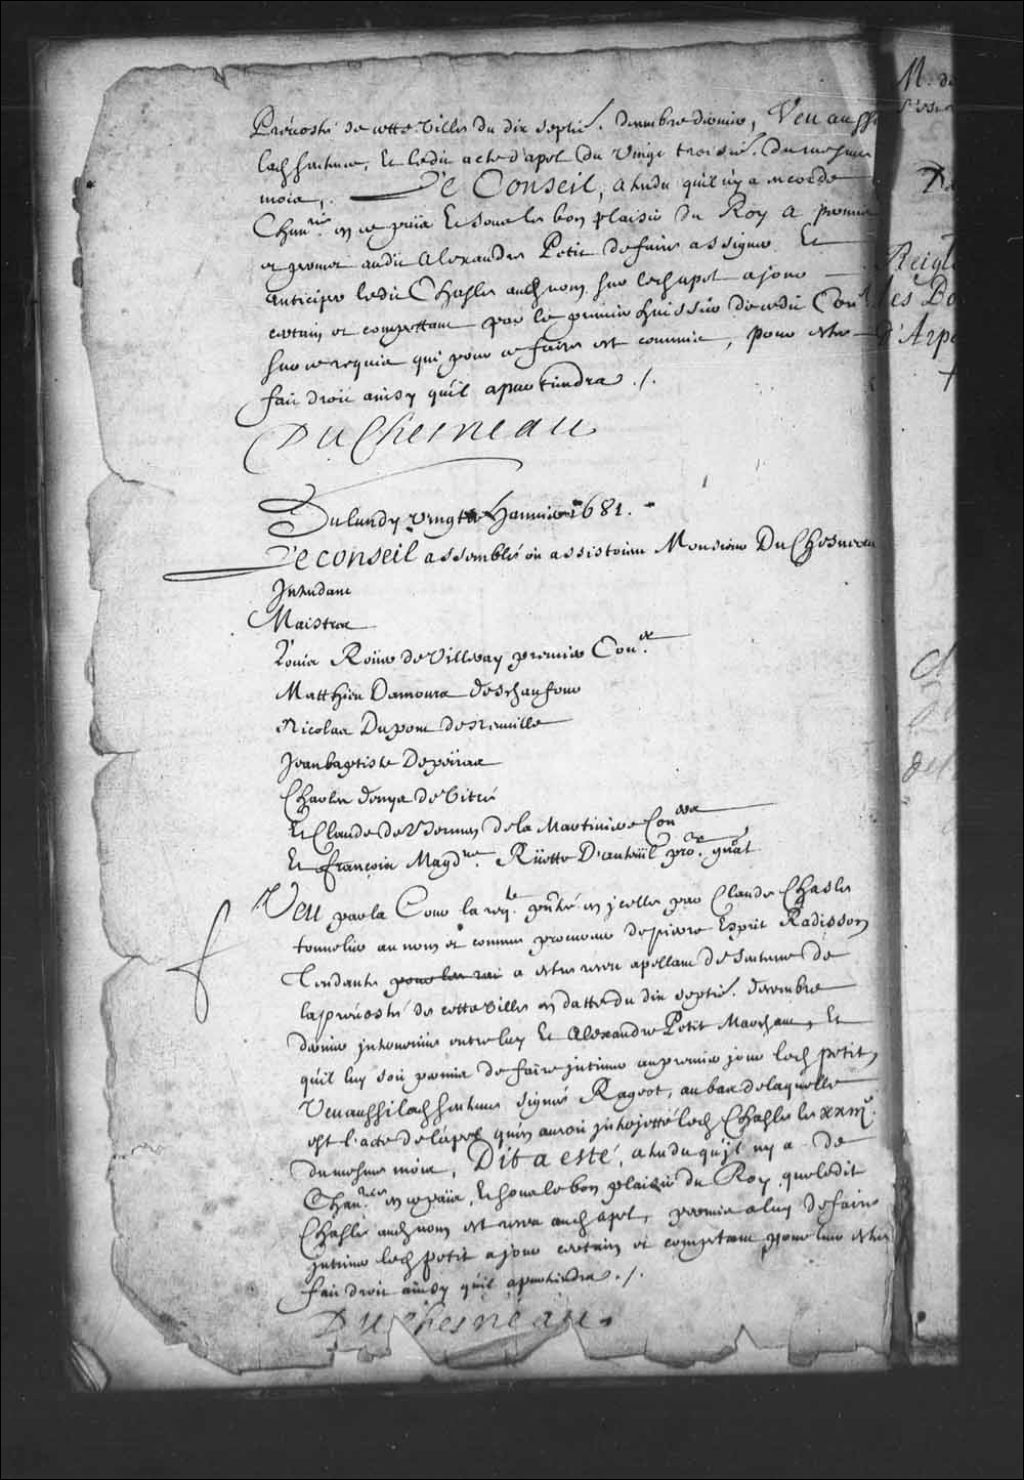 Preuosté de cette Ville du dix septie. decembre dernier, Veu aussy
lad. sentence, Et ledit acte d'apel du vingt troisie. du mesme
mois, Le Conseil, atendu quil n'y a encorede
Chanrie en ce païs Et soubs le bon plaisir du Roy a permis
et permet audit Alexandre Petit de faire assigner Et
anticiper ledit Chasles aud. nom sur led. apel a jour
certain et competant par le premier huissier de cedit Conel
sur ce requis qui pour ce faire est commis, pour estre
fait droit ainsy quil apartiendra ./.
DuChesneau
Du lundy vingt Januier 1681.
Le Conseil assemblé où assistoient Monsieur DuChesneau
Intendant
Maistres
Louis Roüer de Villeray premier Coner
Matthieu Damours Deschaufour
Nicolas Dupont de Neuuille
Jean baptiste Depeiras
Charles Denys de Vitré
Et Claude de Bermen de la Martiniere Coners
Et François Magdne. Rüette D'auteüil procr. gnâl
Veu par la Cour la reqte. pñtée en jcelle par Claude Chasle
tonnelier au nom et comme procureur de pierre Esprit Radisson
Tendante pour les rai a estre receu apellant de Sentence de
la preuosté de cette Ville en datte du dix septie. decembre
dernier interuenue entre luy Et Alexandre Petit Marchant, Et
quil luy soit permis de faire jntimer au premier jour led. petit
Veu aussi lad. sentence signée Rageot, au bas de laquelle
est l'acte de l'apel quen auroit jnterjetté led. Chasles le xxiije.
du mesme mois, Dit a esté, atendu qu'jl n'y a de
Chanrie en ce païs, Et sous le bon plaisir du Roy, que ledit
Chasles aud. nom est receu aud. apel, permis a luy de faire
jntimer led. petit a jour certain et competant pour leur estre
fait droit ainsy quil apartiendra ./.
DuChesneau